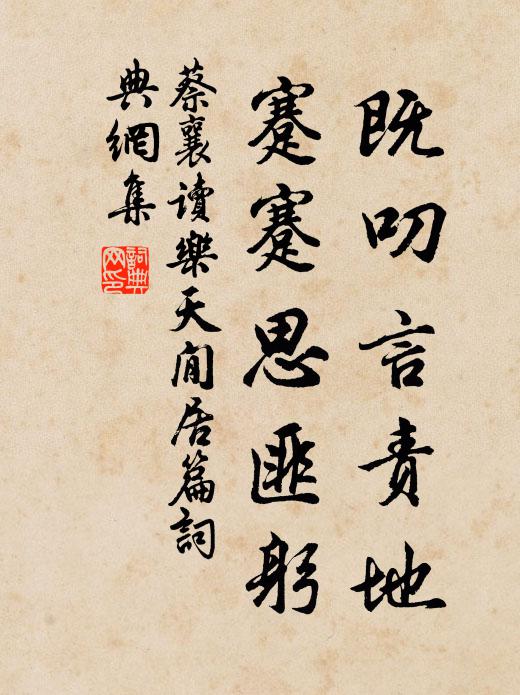 既叨言责地
蹇蹇思匪躬
蔡襄读樂天閒居篇詞
典網集
詞典
网印